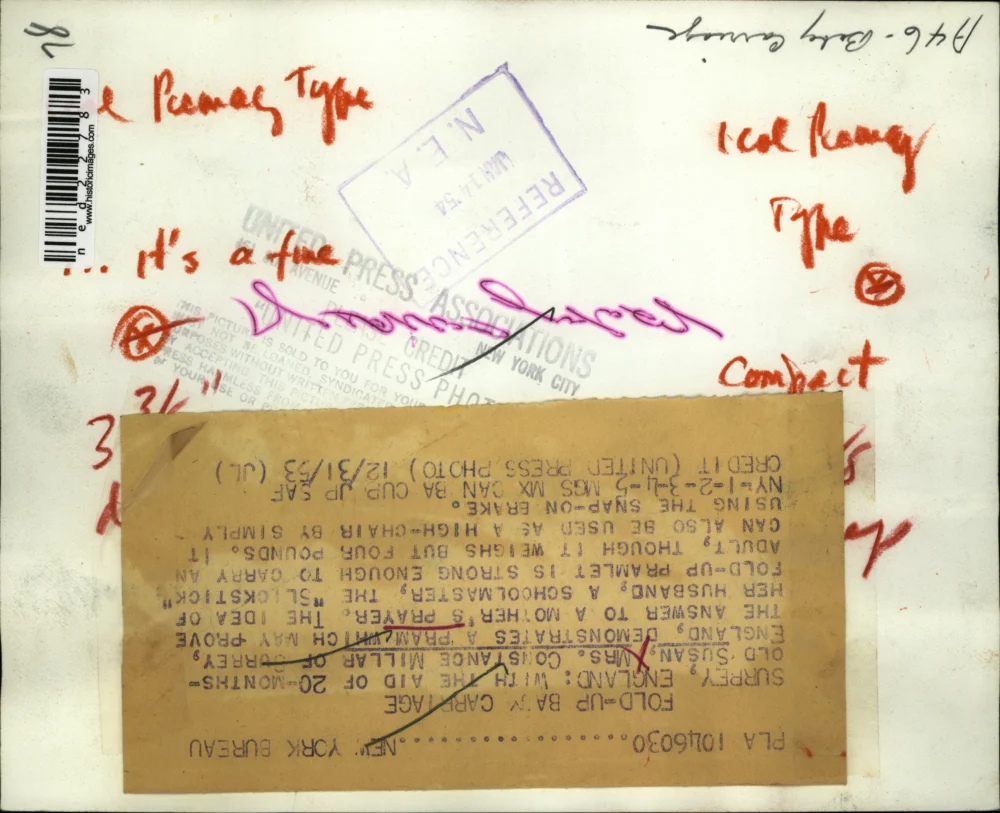 A46 - Baby Carriage
e Romag Type
ical Romag
Type
... it's a fine
Compact
36"
3
REFERENCE
JAN 14 '54
N. E. A.
UNITED PRESS ASSOCIATIONS
AVENUE
NEW YORK CITY
CREDIT
UNITED PRESS PHOTO
THIS PICTURE IS SOLD TO YOU FOR YOUR
NOT BE LOANED, SYNDICATED
PURPOSES WITHOUT WRITTEN
ACCEPTING THIS PICTURE
HARMLESS FROM
YOUR USE OR
ned22783
www.historicimages.com
PLA 1046030..................NEW YORK BUREAU
FOLD-UP BABY CARRIAGE
SURREY, ENGLAND: WITH THE AID OF 20-MONTHS-
OLD SUSAN, MRS. CONSTANCE MILLAR OF SURREY,
ENGLAND, DEMONSTRATES A PRAM WHICH MAY PROVE
THE ANSWER TO A MOTHER'S PRAYER. THE IDEA OF
HER HUSBAND, A SCHOOLMASTER, THE "SLICKSTICK"
FOLD-UP PRAMLET IS STRONG ENOUGH TO CARRY AN
ADULT, THOUGH IT WEIGHS BUT FOUR POUNDS. IT
CAN ALSO BE USED AS A HIGH-CHAIR BY SIMPLY
USING THE SNAP-ON BRAKE.
NY-1-2-3-4-5 MGS MX CAN BA CUP JP SAF
CREDIT (UNITED PRESS PHOTO) 12/31/53 (JL)